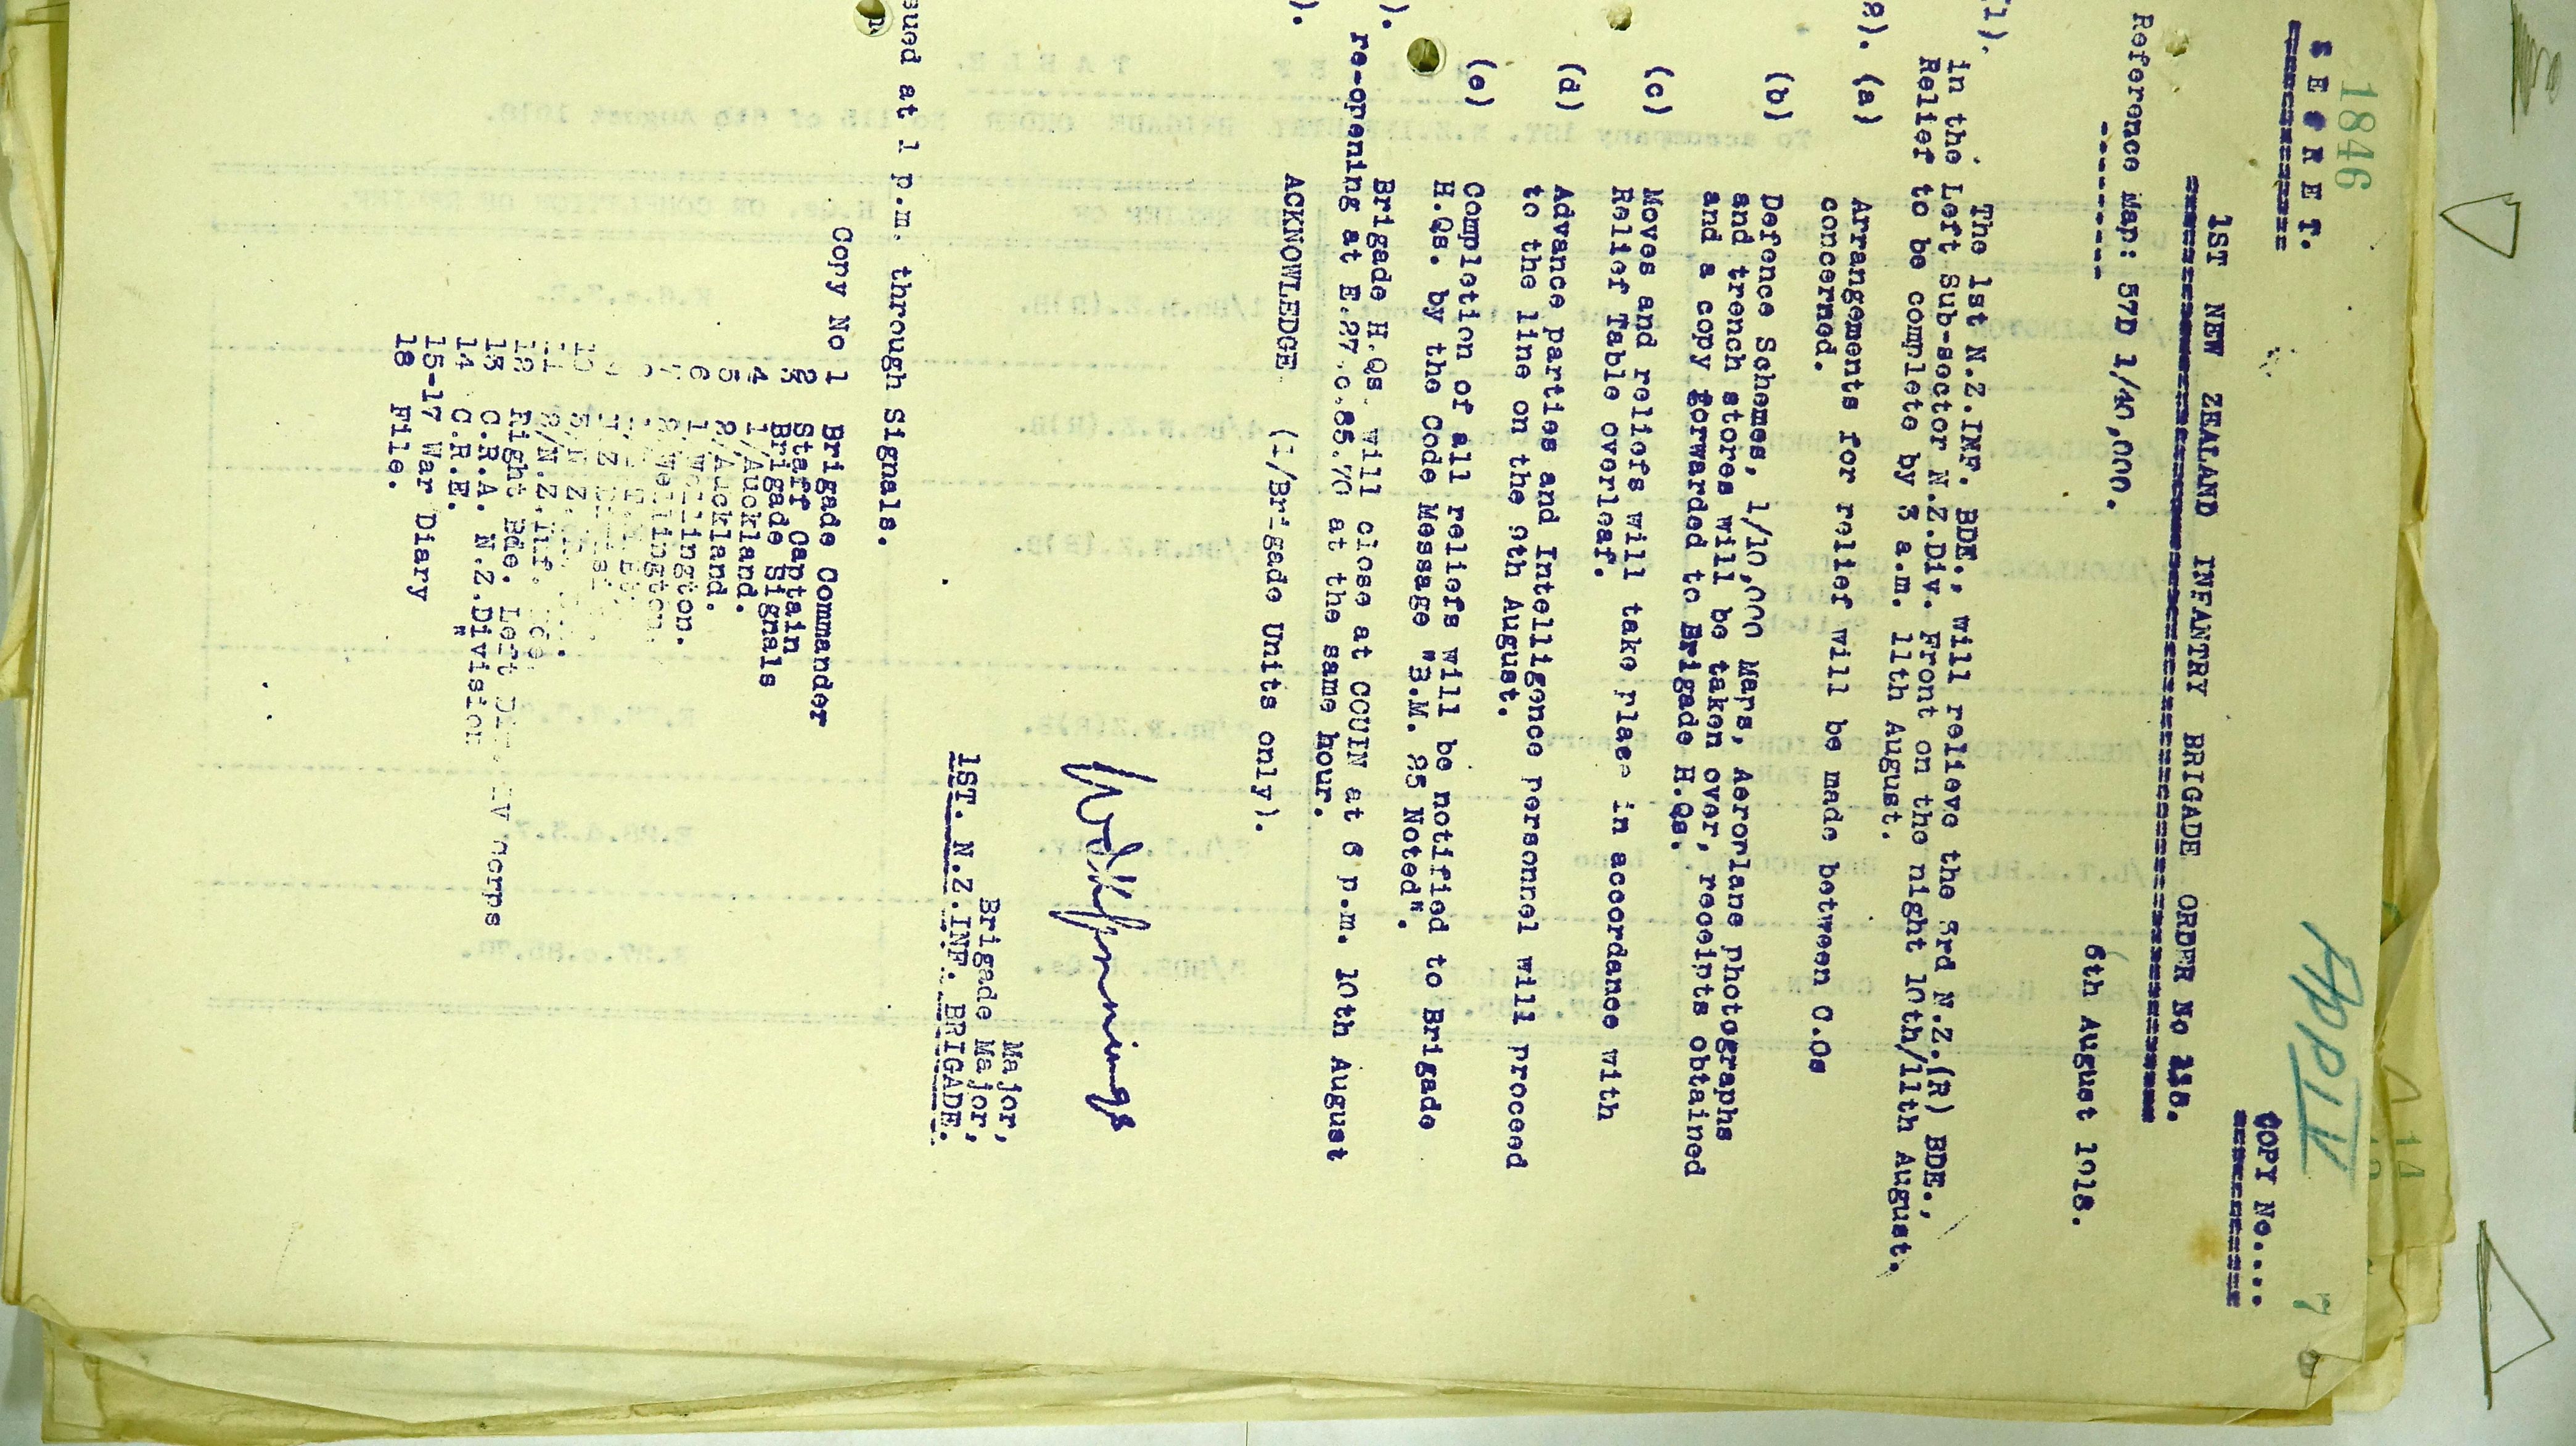 1846
APP IV
7
S E C R E T.
COPY No....
1ST NEW ZEALAND INFANTRY BRIGADE ORDER No
Reference Map: 57D 1/40,000.
6th August 1918.
1). The 1st N.Z.INF. BDE., will relieve the 3rd N.Z.(R) BDE.,
in the Left Sub-sector N.Z.Div. Front on the night 10th/11th August.
Relief to be complete by 3 a.m. 11th August.
2). (a) Arrangements for relief will be made between O.Os
concerned.
(b) Defence Schemes, 1/10,000 Maps, Aeroplane photographs
and trench stores will be taken over, receipts obtained
and a copy forwarded to Brigade H.Qs.
(c) Moves and reliefs will take place in accordance with
Relief Table overleaf.
(d) Advance parties and Intelligence personnel will proceed
to the line on the 9th August.
(e) Completion of all reliefs will be notified to Brigade
H.Qs. by the Code Message "B.M. 25 Noted".
). Brigade H.Qs. will close at COUIN at 6 p.m. 10th August
re-opening at E.27.c.85.70 at the same hour.
). ACKNOWLEDGE (1/Brigade Units only).
Major,
Brigade Major,
1ST. N.Z.INF. BRIGADE.
sued at 1 p.m. through Signals.
Copy No 1 Brigade Commander
2 Staff Captain
3 Brigade Signals
4 1/Auckland.
5 2/Auckland.
6 1/Wellington.
7 2/Wellington.
10
11
12 Right Bde. Left Div. IV Corps
13 C.R.A. N.Z.Division
14 C.R.E. "
15-17 War Diary
18 File.